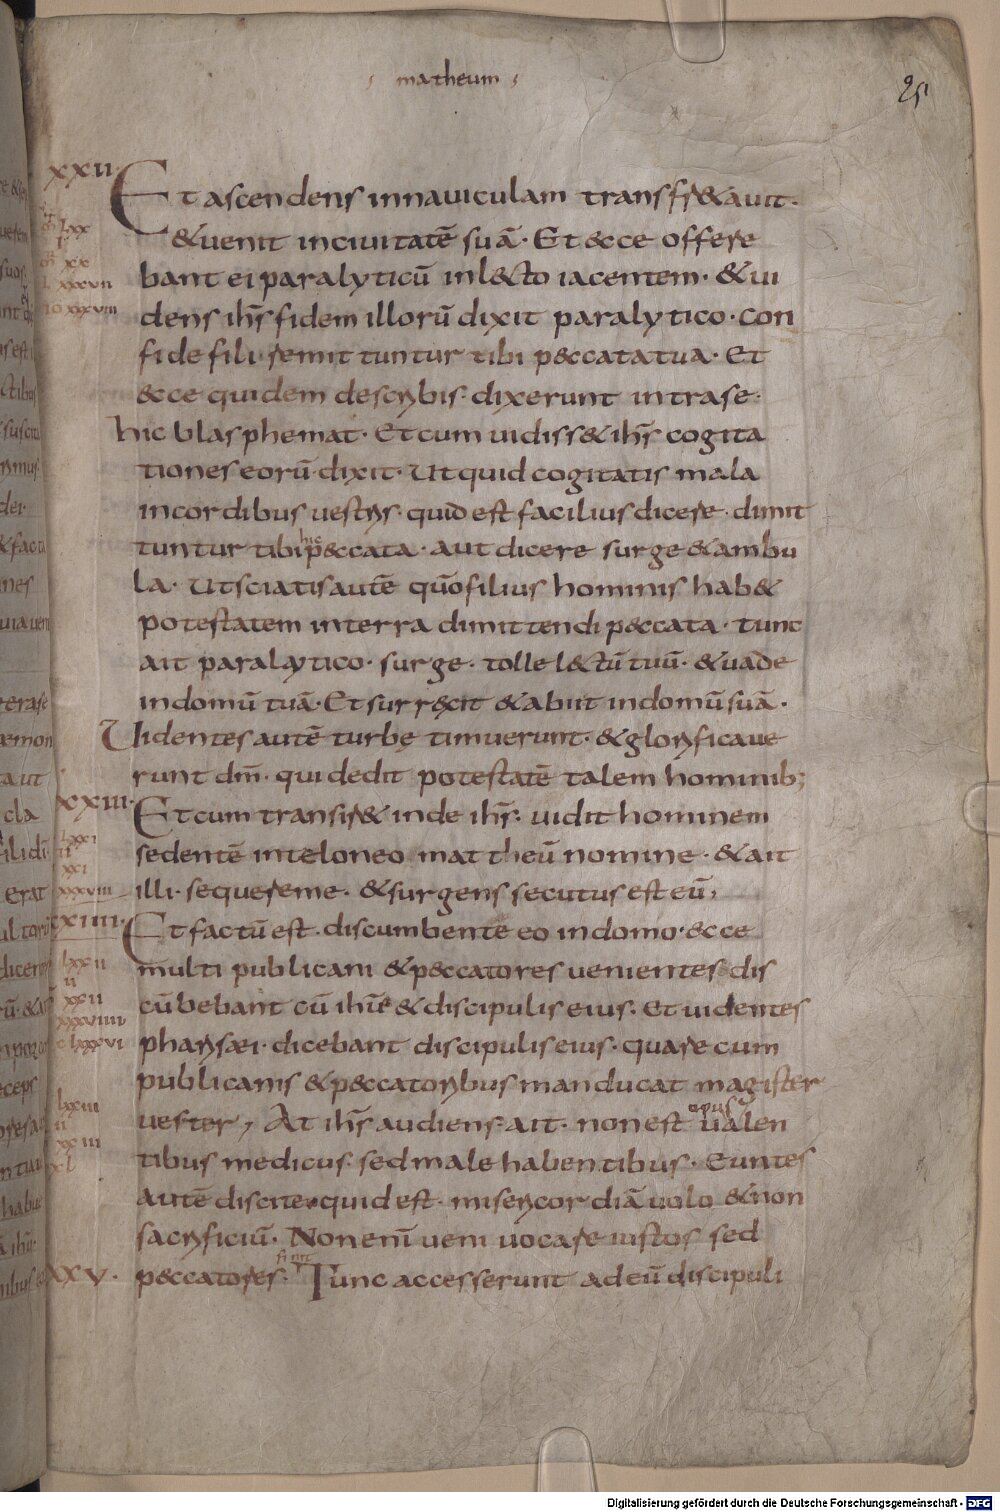 matheum
25
XXII. Et ascendens innauiculam transfr&auit.
lxx
&uenit inciuitatē suā. Et ecce offere
bant ei paralyticū inlecto iacentem. &ui
xxxvii
dens ihs̄ fidem illorū dixit paralytico. con
xxxviii
fide fili remittuntur tibi peccata tua. Et
ecce quidem describis. dixerunt intrase.
hic blasphemat. Et cum uidiss& ihs̄ cogita
tiones eorū. dixit. Utquid cogitatis mala
incordibus uestris. quid est facilius dicere. dimit
tuntur tibi hic peccata. aut dicere surge &ambu
la. Utsciatis autē quō filius hominis hab&
potestatem interra dimittendi peccata. tunc
ait paralytico. surge. tolle lectū tuū. &uade
indomū tuā. Et surrexit &abiit indomū suā.
Uidentes autē turbę timuerunt. &glorificaue
runt dm̄. qui dedit potestatē talem hominib;
XXIII. Et cum transir& inde ihs̄. uidit hominem
lxxi
sedentē inteloneo mattheū nomine. &ait
xxi
xxxviii
illi. sequereme. &surgens secutus est eū,
XXIIII. Et factū est. discumbente eo indomo. ecce
lxxii
multi publicani &peccatores uenientes dis
ii
xxii
cūbebant cū ihū &discipulis eius. Et uidentes
xxxviiii
pharisæi. dicebant discipulis eius. quare cum
clxxxvi
publicanis &peccatoribus manducat magister
lxxiii
uester, At ihs̄ audiens. ait. non est opus ualen
ii
xxiii
tibus medicus. sed male habentibus. Euntes
xl
autē discite. quid est. misericordiā uolo &non
sacrificiū. Non enī ueni uocare iustos sed
XXV. peccatores. finit Tunc accesserunt ad eū discipuli
Digitalisierung gefördert durch die Deutsche Forschungsgemeinschaft - DFG